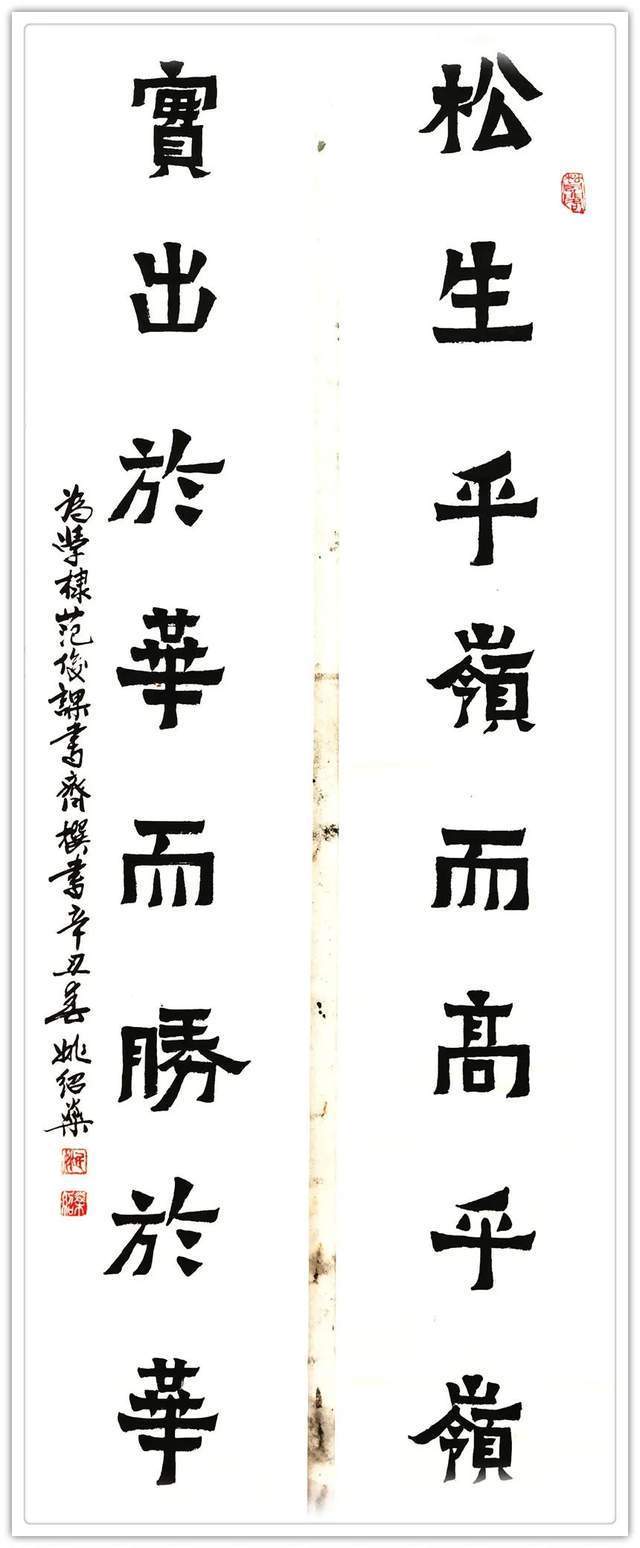 松生乎嶺而高乎嶺
實出於華而勝於華
為學棣范俊課書齋撰書辛丑春姚紹藥